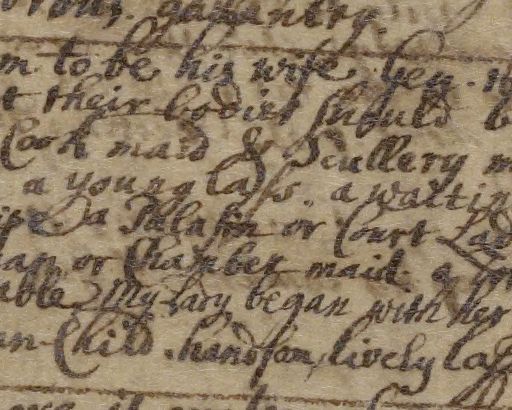 gallantry.
m to be his wife. Gen.
t their bodies should b
Cook maid & Scullery m
a young lass. a waitin
or Court Lad
or Chamber maid. a
able My lady began with her
an Child. handsom, lively las